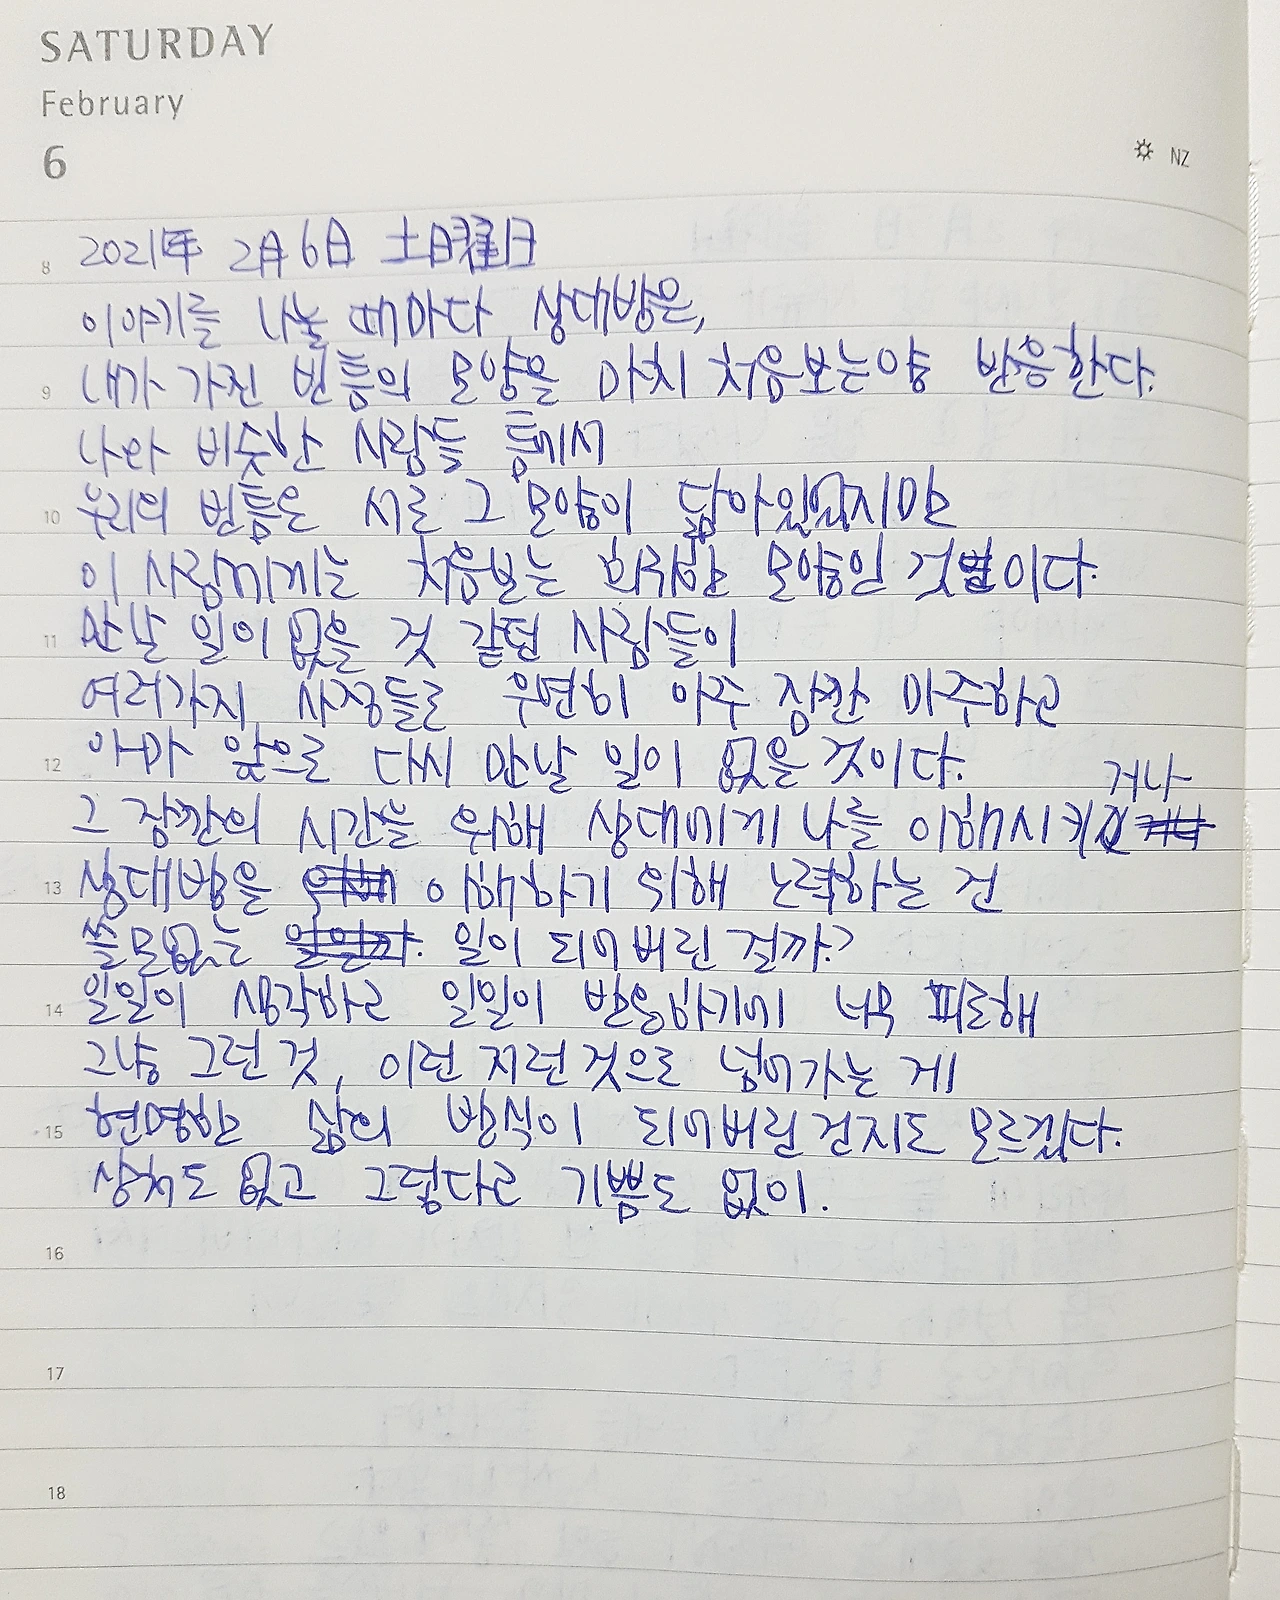 SATURDAY
February
6
☼ NZ
2021年 2月 6日 土曜日
8
이야기를 나눌 때마다 상대방은,
9 내가 가진 빈틈의 모양을 마치 처음보는양 반응한다.
나와 비슷한 사람들 틈에서
10 우리의 빈틈은 서로 그 모양이 닮아있었지만
이 사람에게는 처음보는 희귀한 모양인 것이다.
11 만날 일이 없을 것 같던 사람들이
여러가지 사정들로 우연히 아주 잠깐 마주하고
12 아마 앞으로 다시 만날 일이 없을 것이다.
그 잠깐의 시간을 위해 상대에게 나를 이해시키거나
13 상대방을 이해하기 위해 노력하는 건
쓸모없는 일이 되어버린 걸까?
14 일일이 생각하고 일일이 반응하기에 너무 피로해
그냥 그런 것, 이런 저런 것으로 넘어가는 게
15 현명한 삶의 방식이 되어버린 건지도 모르겠다.
상처도 없고 그렇다고 기쁨도 없이.
16
17
18